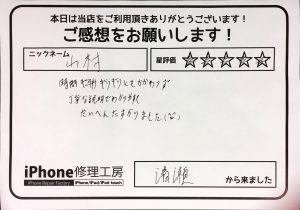 本日は当店をご利用頂きありがとうございます!
ご感想をお願いします!
ニックネーム
山村
星評価
☆☆☆☆☆
時間ギリギリにもかかわらず
丁寧な説明でわかりやすく
たいへんたすかりました
iPhone修理工房
iPhone Repair Factory
iPhone/iPad/iPod touch
清瀬
から来ました